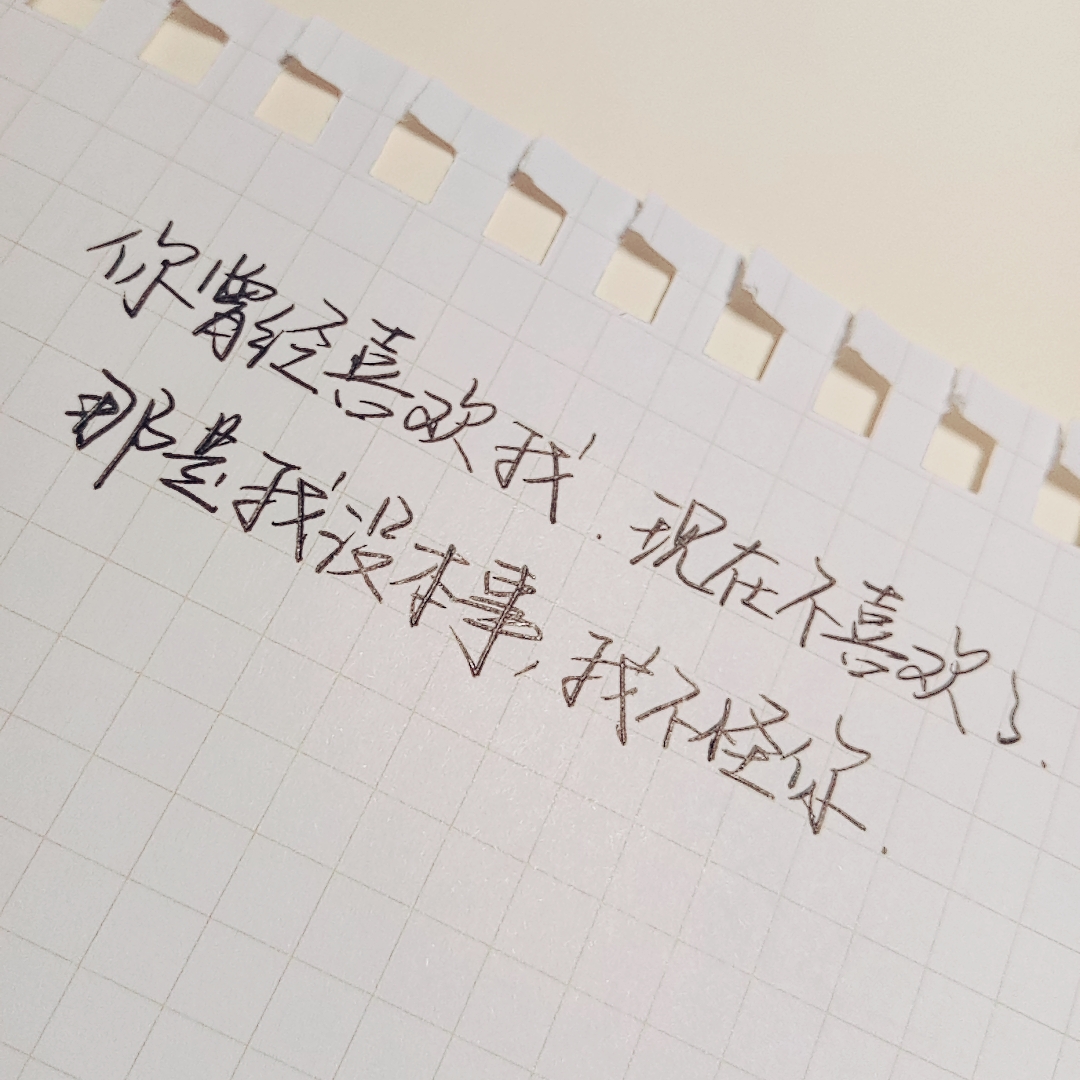 你曾经喜欢我.现在不喜欢了.
那是我没本事,我不怪你.